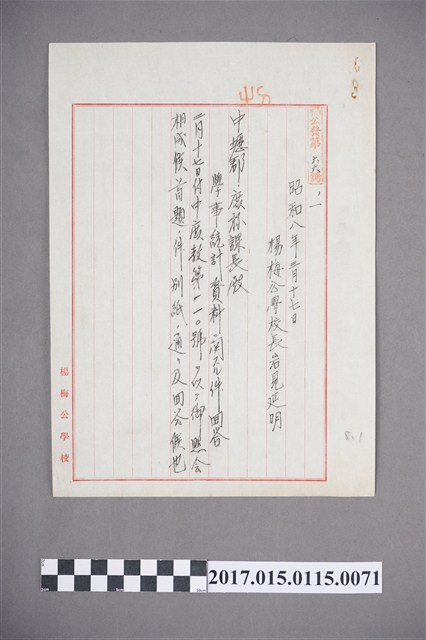 公發第六六號ノ一
昭和八年三月十七日
楊梅公學校長岩見延明
中壢郡庶務課長殿
學事統計資料ニ関スル件回答
三月十七日付中庶教第一一〇號ヲ以テ御照会
相成候首題ノ件別紙ノ通リ及回答候也
楊梅公學校
2017.015.0115.0071